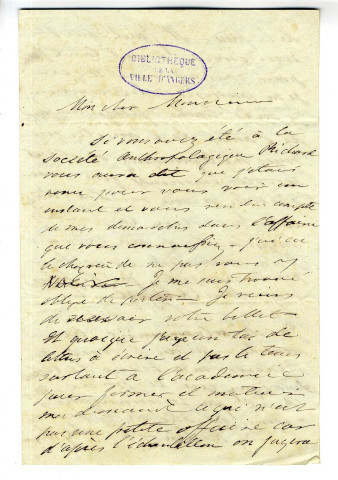 BIBLIOTHÈQUE
DE LA
VILLE D'ANGERS
Mon cher Monsieur
Si vous avez été à la
société anthropologique Richard
vous aura dit que j'étais
venu pour vous voir un
instant et vous rendre compte
de mes démarches dans l'affaire
que vous connaissez — j'ai eu
le chagrin de ne pas vous y
Je me suis trouvé
obligé de partir — Je viens
de recevoir votre billet
Et quoique j'aye un tas de
lettres à écrire et pas le temps
surtout à l'académie
pour former et
ma demande ce qui n'est
pas une petite affaire car
d'après l'échantillon on jugera